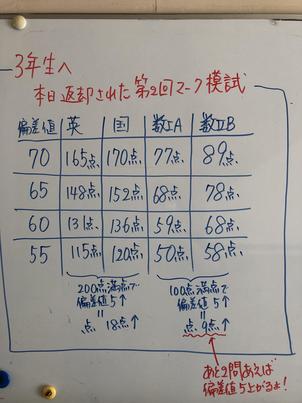 3年生へ
本日返却された第2回マーク模試
偏差値 英 国 数ⅠA 数ⅡB
70 165点 170点 77点 89点
65 148点 152点 68点 78点
60 131点 136点 59点 68点
55 115点 120点 50点 58点
200点満点で 100点満点で
偏差値5↑ 偏差値5↑
= =
点 18点↑ 点 9点↑
あと2問あえば
偏差値5上がるよ!